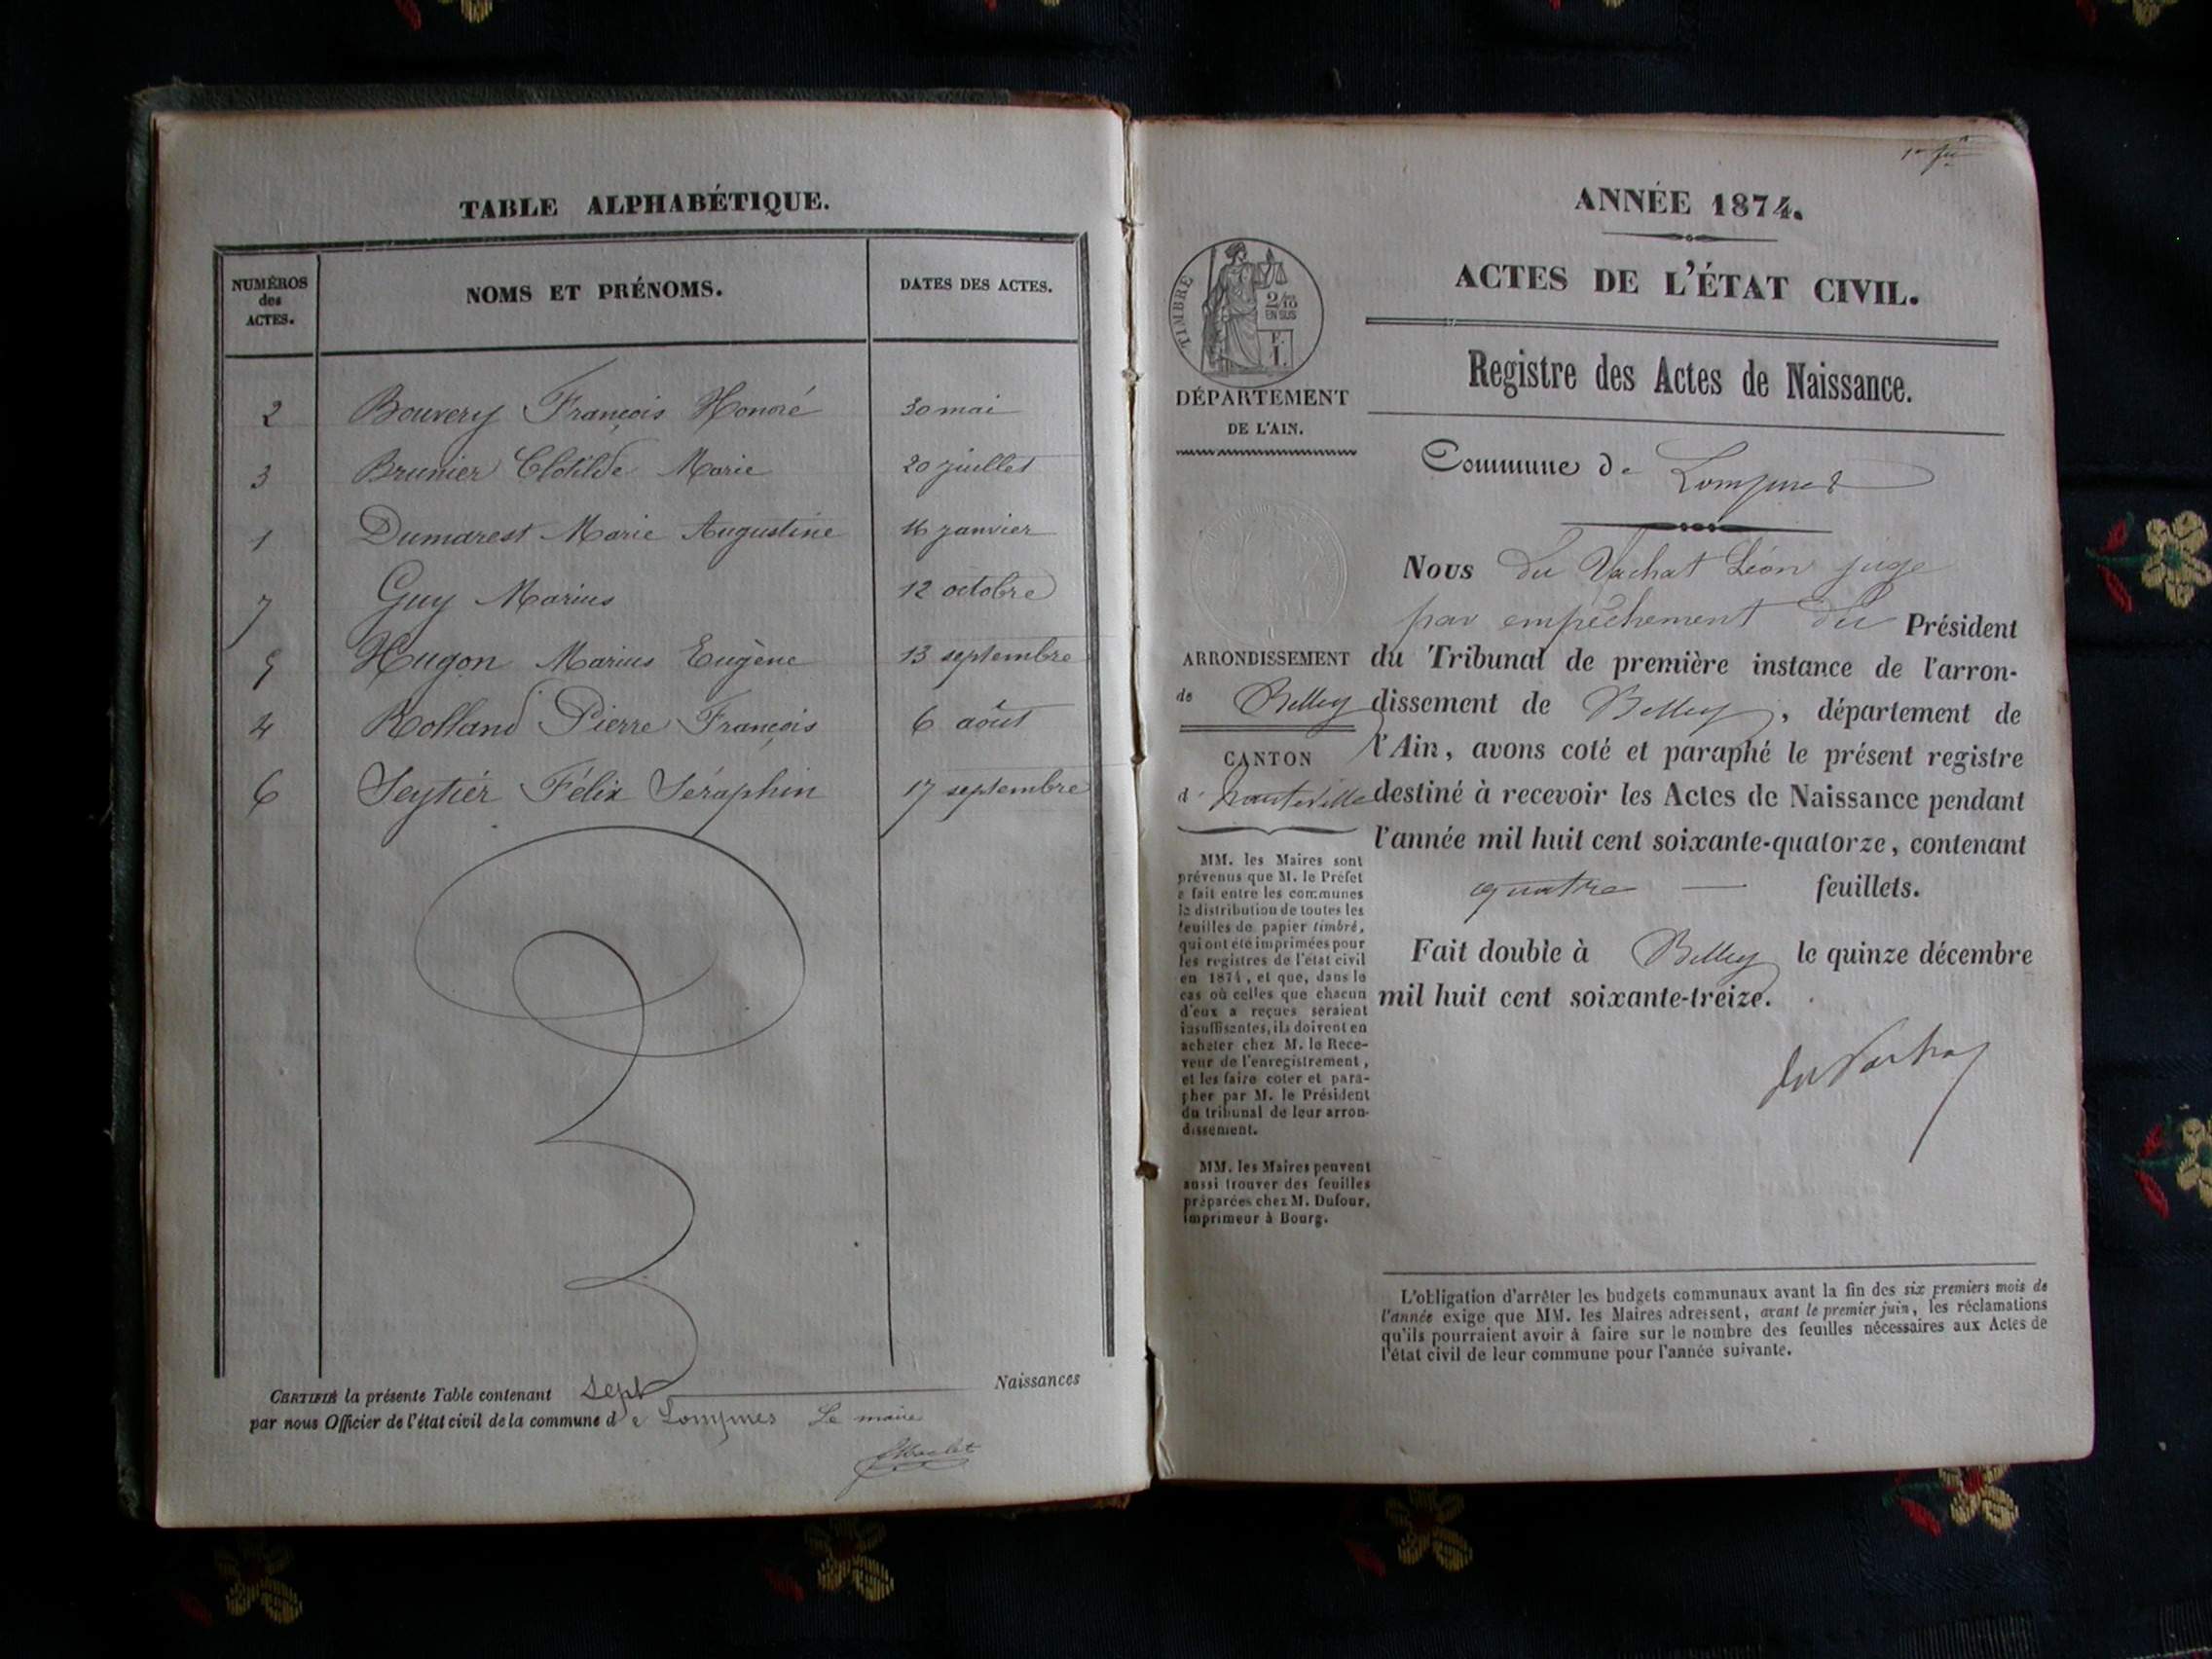 TABLE ALPHABÉTIQUE.
NUMÉROS des ACTES.
NOMS ET PRÉNOMS.
DATES DES ACTES.
2 Bouvery François Honoré 30 mai
3 Brunier Clotilde Marie 20 juillet
1 Dumarest Marie Augustine 16 janvier
7 Guy Marius 12 octobre
5 Hugon Marius Eugène 13 septembre
4 Rolland Pierre François 6 août
6 Seytier Félix Séraphin 17 septembre
CERTIFIÉ la présente Table contenant Sept Naissances
par nous Officier de l'état civil de la commune de Lompnes Le maire
ANNÉE 1874.
ACTES DE L'ÉTAT CIVIL.
Registre des Actes de Naissance.
TIMBRE
2/10
EN SUS
F.
1.
DÉPARTEMENT
DE L'AIN.
ARRONDISSEMENT
de Belley
CANTON
d'hauteville
MM. les Maires sont
prévenus que M. le Préfet
a fait entre les communes
la distribution de toutes les
feuilles de papier timbré,
qui ont été imprimées pour
les registres de l'état civil
en 1874, et que, dans le
cas où celles que chacun
d'eux a reçues seraient
insuffisantes, ils doivent en
acheter chez M. le Rece-
veur de l'enregistrement,
et les faire coter et para-
pher par M. le Président
du tribunal de leur arron-
dissement.
MM. les Maires peuvent
aussi trouver des feuilles
préparées chez M. Dufour,
imprimeur à Bourg.
Commune de Lompnes
Nous Du Vachat Léon juge
par empêchement du Président
du Tribunal de première instance de l'arron-
dissement de Belley, département de
l'Ain, avons coté et paraphé le présent registre
destiné à recevoir les Actes de Naissance pendant
l'année mil huit cent soixante-quatorze, contenant
quatre — feuillets.
Fait double à Belley le quinze décembre
mil huit cent soixante-treize.
du Vachat
L'obligation d'arrêter les budgets communaux avant la fin des six premiers mois de
l'année exige que MM. les Maires adressent, avant le premier juin, les réclamations
qu'ils pourraient avoir à faire sur le nombre des feuilles nécessaires aux Actes de
l'état civil de leur commune pour l'année suivante.